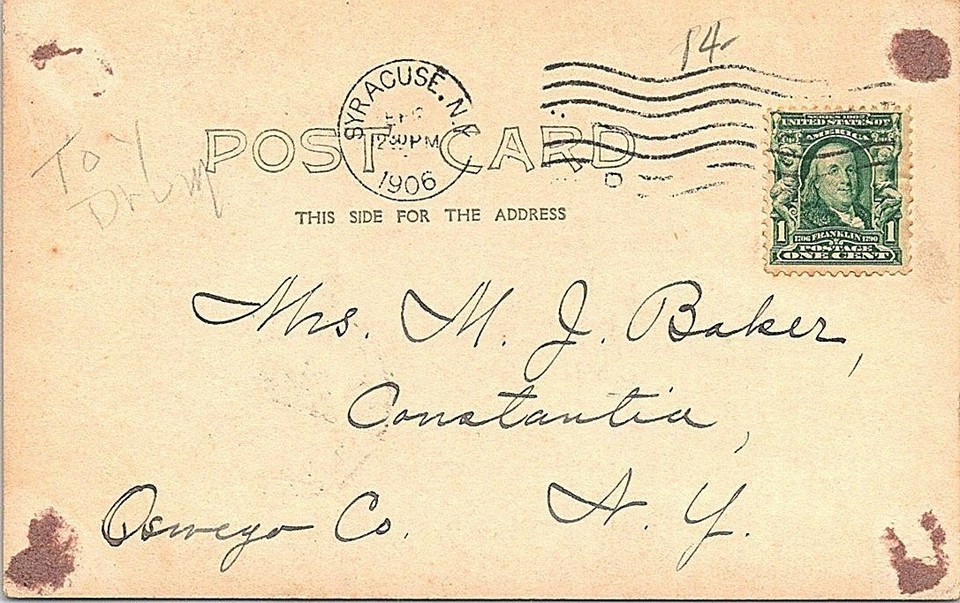 14
SYRACUSE, N.Y.
1906
POST CARD
THIS SIDE FOR THE ADDRESS
To
UNITED STATES OF
AMERICA
1 1706 FRANKLIN 1790 1
POSTAGE
ONE CENT
Mrs. M. J. Baker,
Constantia,
Oswego Co. N. Y.